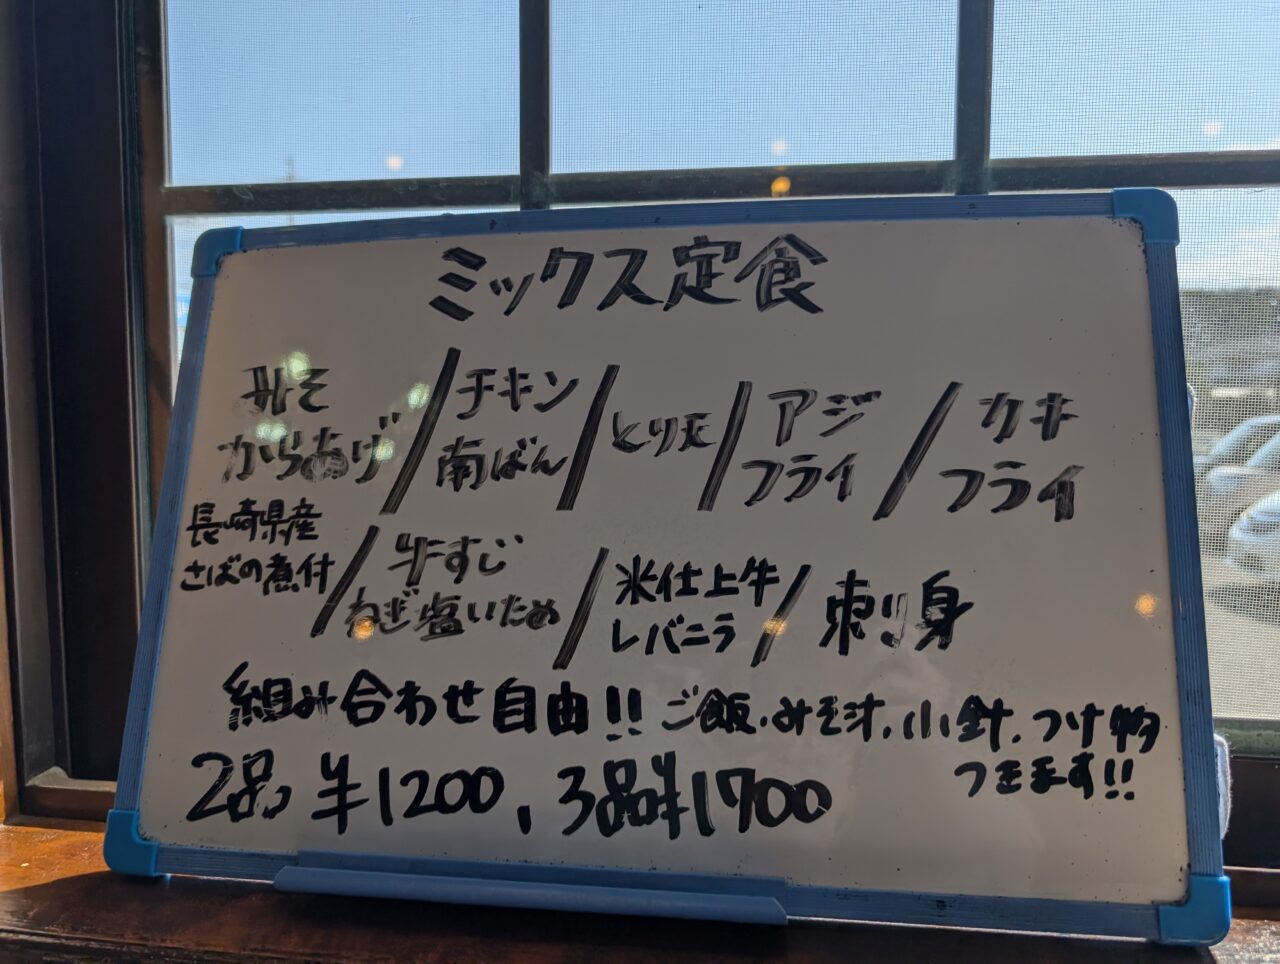 ミックス定食
みそからあげ/チキン南ばん/とり天/アジフライ/カキフライ
長崎県産さばの煮付/牛すじねぎ塩いため/米仕上牛レバニラ/刺身
組み合わせ自由!! ご飯、みそ汁、小針、つけ物つきます!!
2品 ¥1200, 3品¥1700